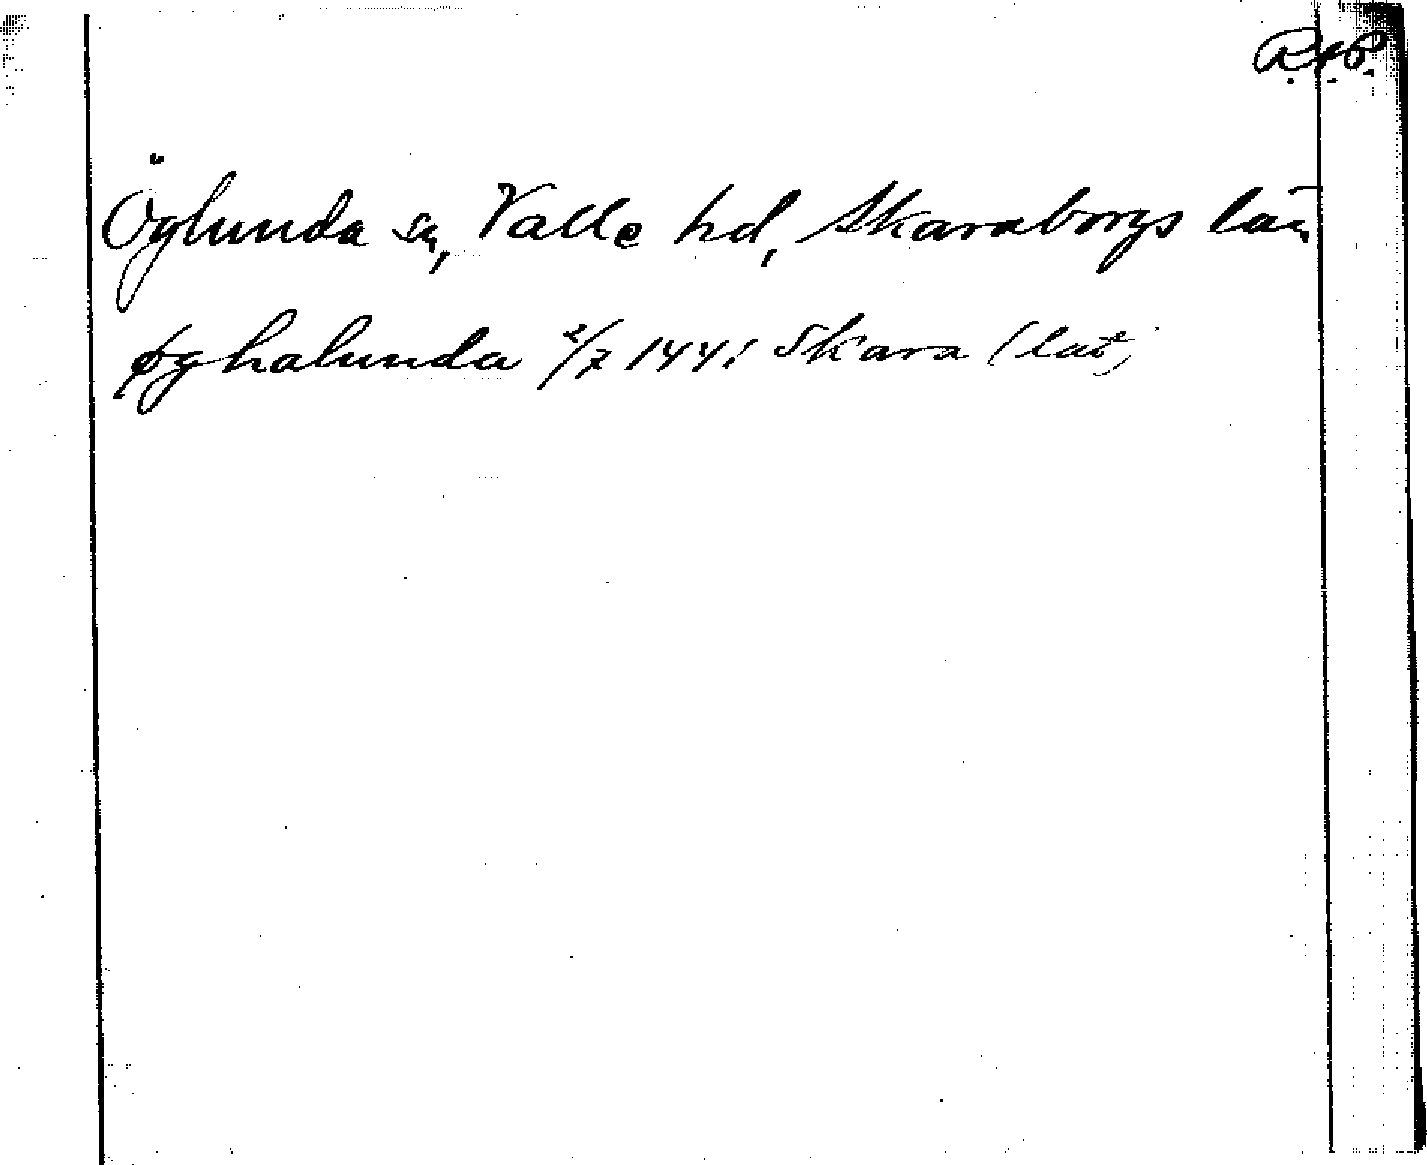 R.A.P.
Öglunda sn, Valle hd, Skaraborgs län
øghalunda 2/7 1441 Skara (lat)